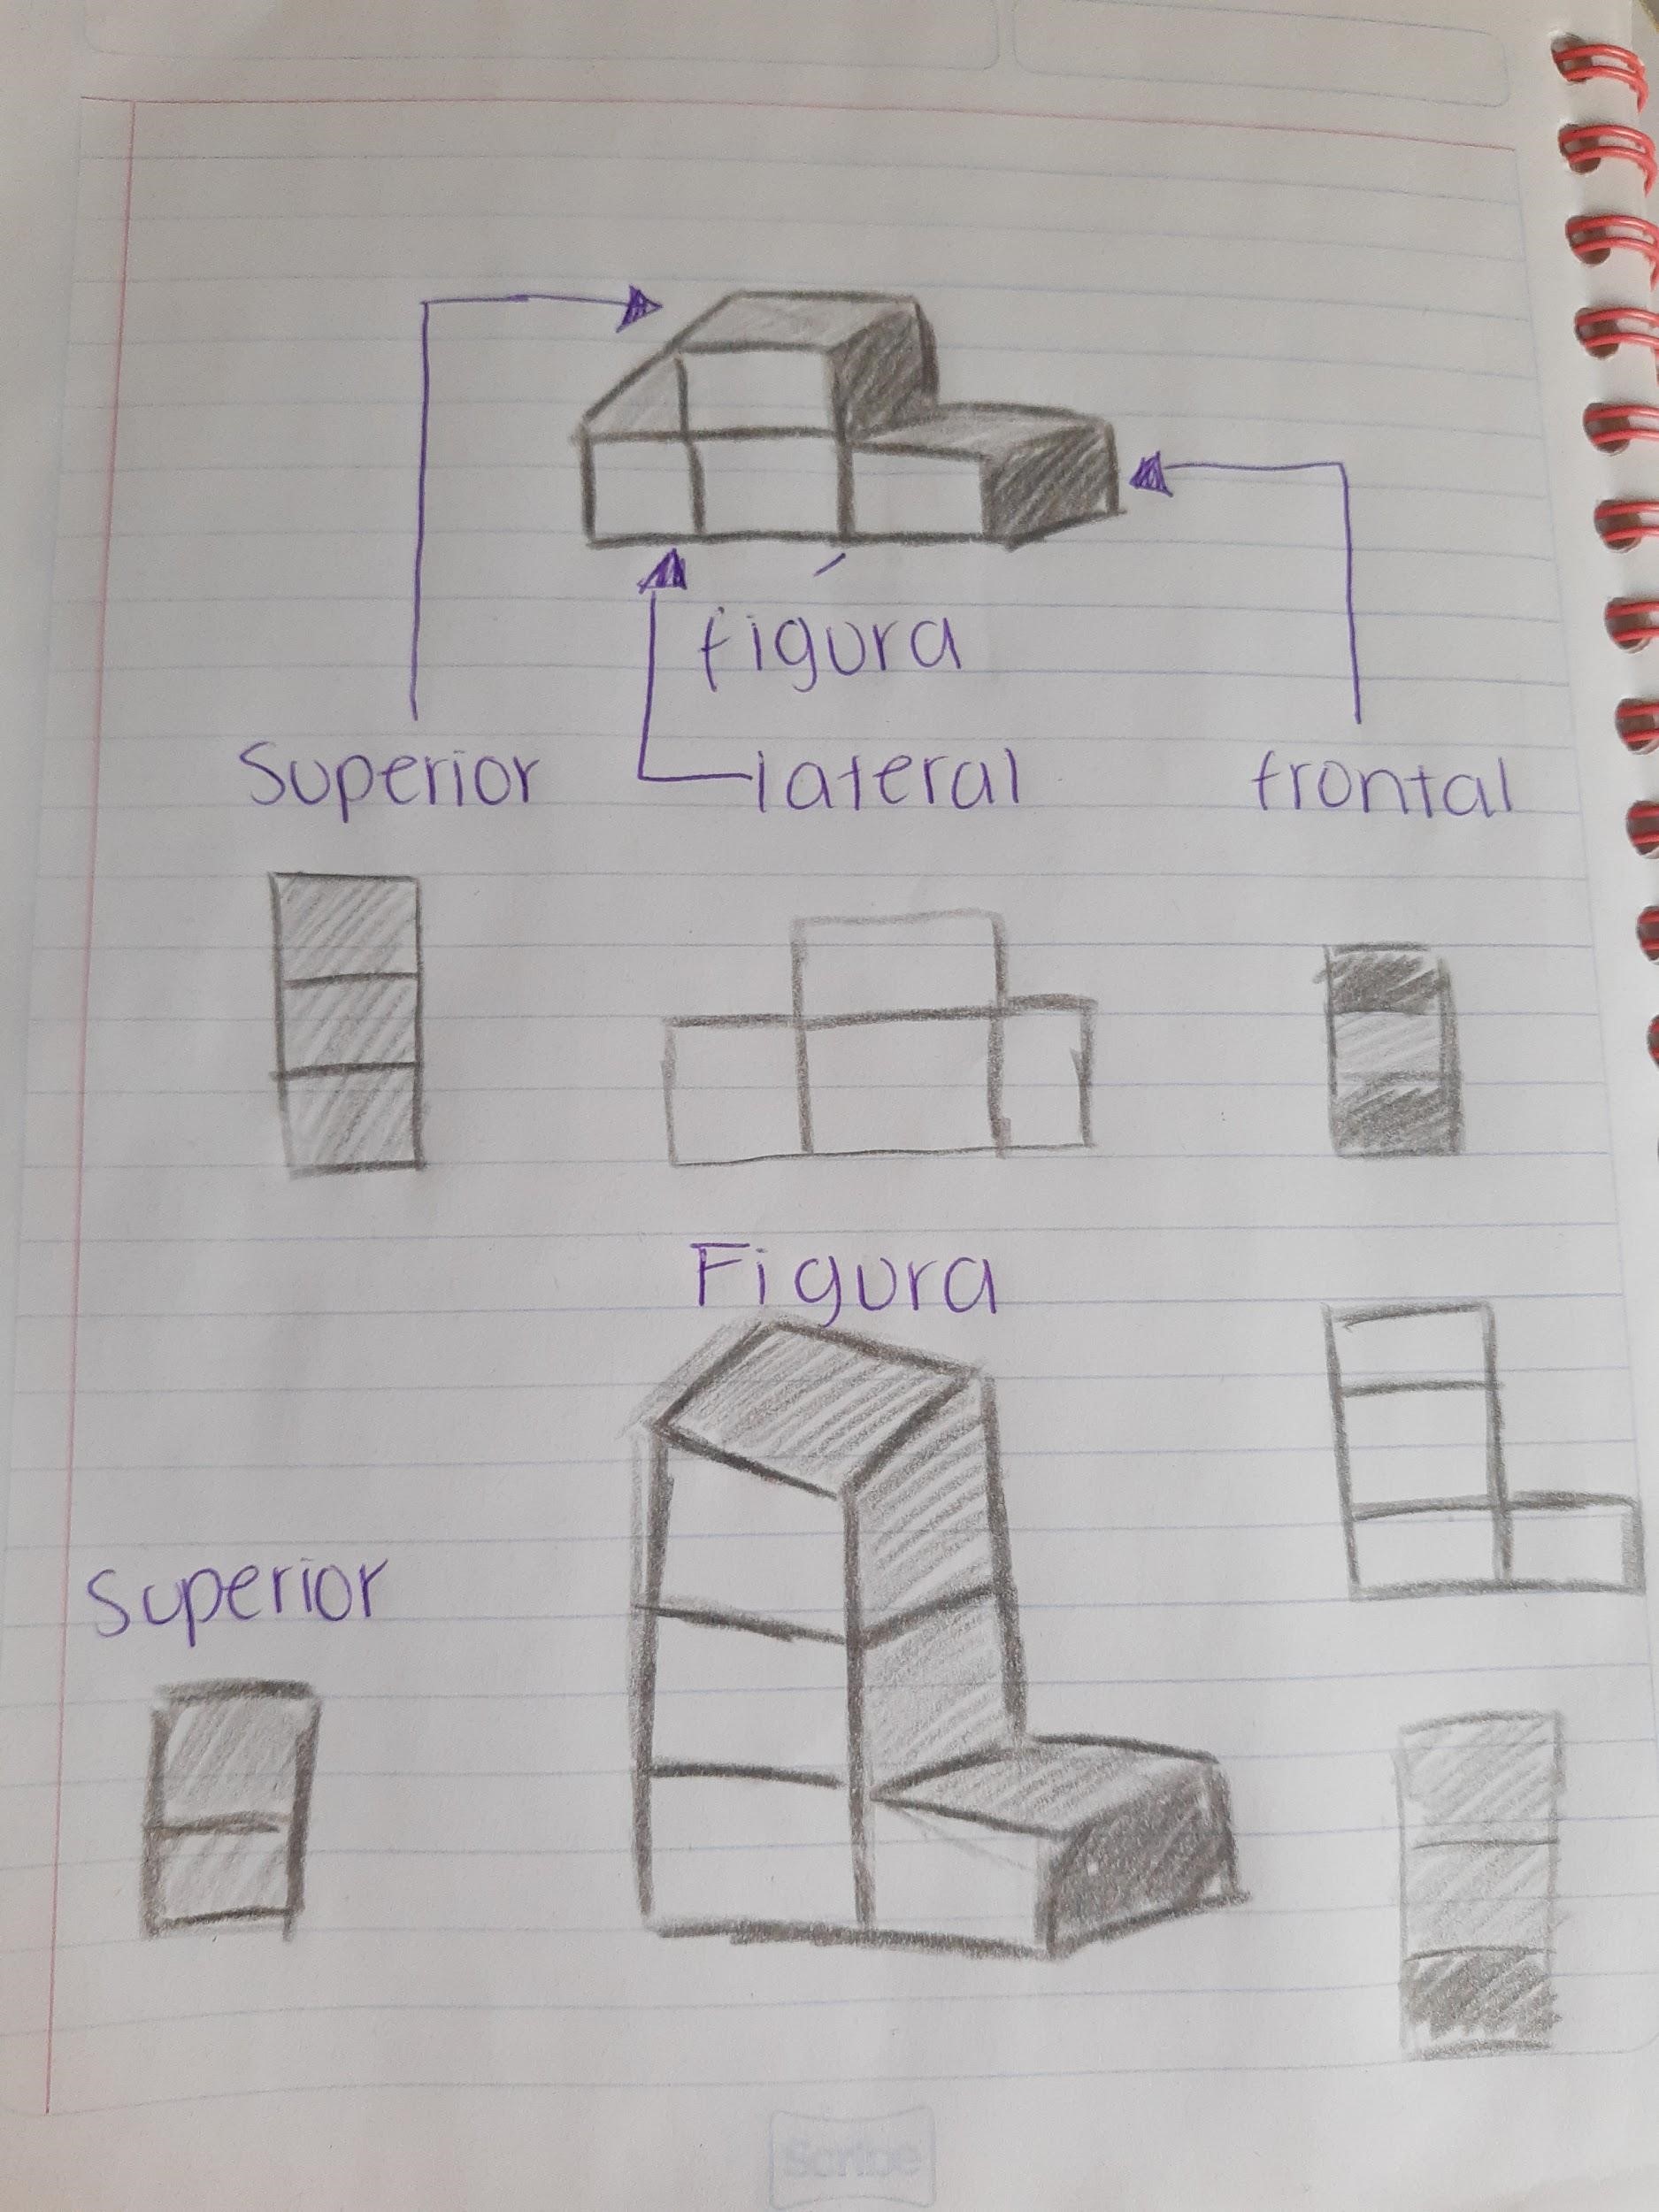 figura
Superior lateral frontal
Figura
Superior
Scribe